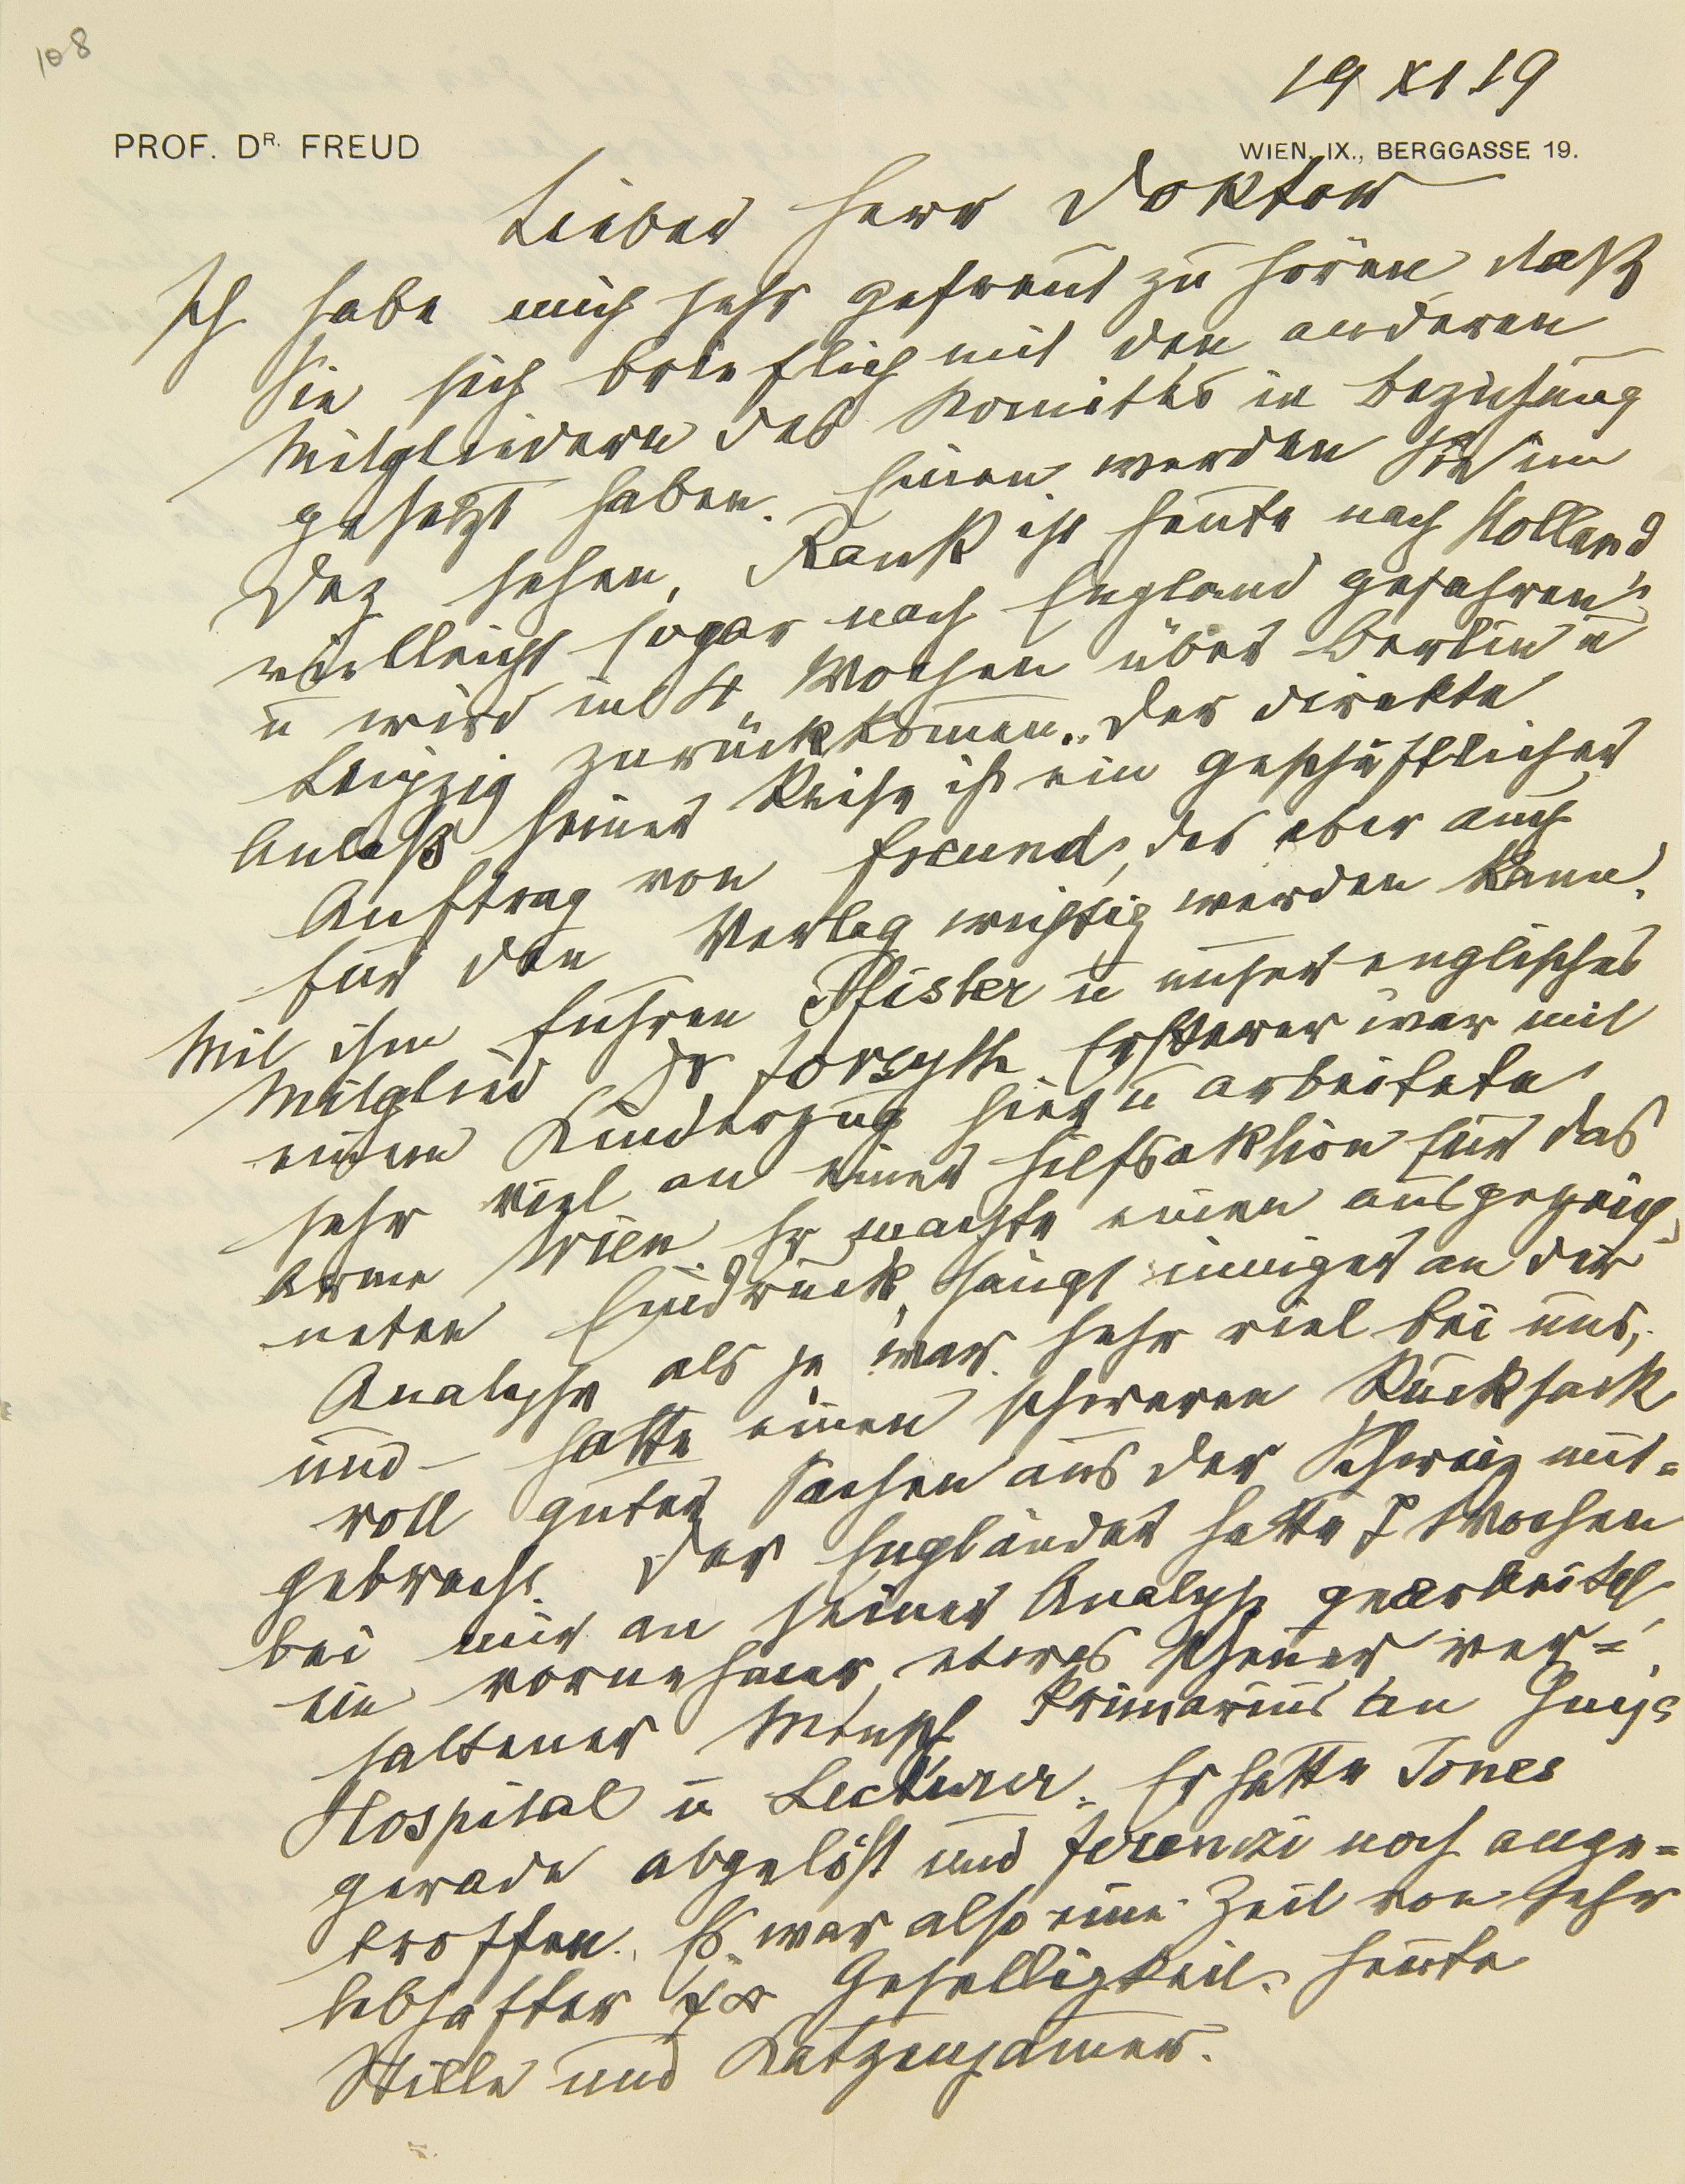 108
19 XI 19
PROF. DR. FREUD
WIEN, IX., BERGGASSE 19.
Lieber Herr Doktor
Ich habe mich sehr gefreut zu hören, daß
Sie sich brieflich mit den anderen
Mitgliedern des Komites in Beziehung
gesetzt haben. Einen werden Sie im
Dez sehen, Rank ist heute nach Holland,
vielleicht sogar nach England gefahren
u wird in 4 Wochen über Berlin u
Leipzig zurückkommen. Der direkte
Anlaß seiner Reise ist ein geschäftlicher
Auftrag von Freund, der aber auch
für den Verlag wichtig werden kann.
Mit ihm fuhren Pfister u unser englisches
Mitglied Dr Forsyth. Ersterer war mit
einem Kinderzug hier u arbeitete
sehr viel an einer Hilfsaktion für das
arme Wien. Er machte einen ausgezeich
neten Eindruck, hängt inniger an der
Analyse als je, war sehr viel bei uns,
und – hatte einen schweren Rucksack
voll guter Sachen aus der Schweiz mit=
gebracht. Der Engländer hatte 7 Wochen
bei mir an seiner Analyse gearbeitet,
ein vornehmer, etwas scheuer ver=
haltener Mensch, Primarius an Guys
Hospital u Lecturer. Er hatte Jones
gerade abgelöst und Ferenczi noch ange=
troffen. Es war also eine Zeit von sehr
lebhafter Geselligkeit. Heute
Stille und Katzenjammer.